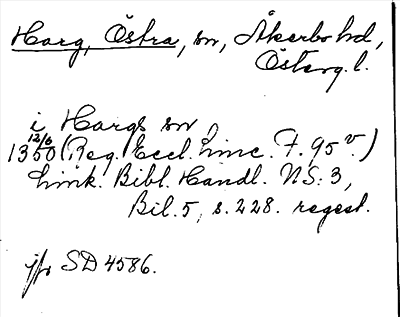 Harg, Östra, sn, Åkerbo hd,
Österg. l.
i Hargs sn
12/6
1350 (Reg. Eccl. Linc. F. 95 v.)
Link. Bibl. Handl. NS: 3,
Bil. 5, s. 228. regest.
jfr SD 4586.